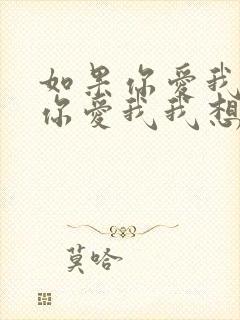 如果你爱我
你爱我我想
莫哈